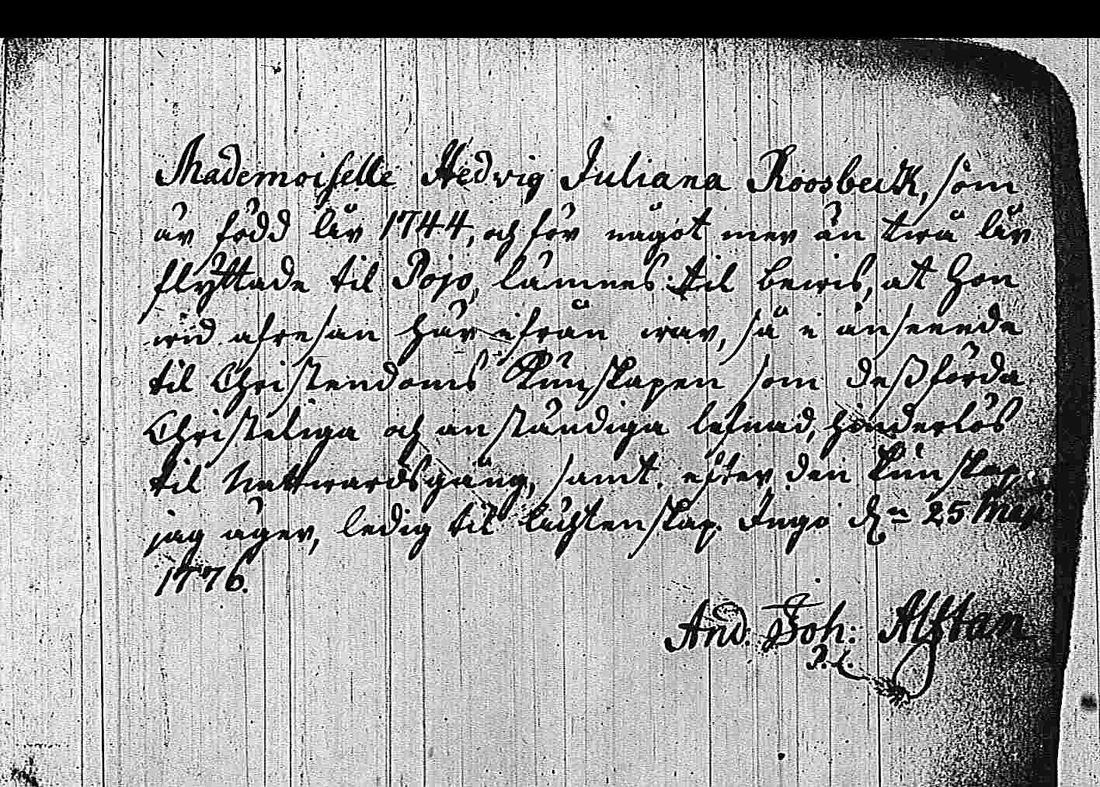 Mademoiselle Hedvig Juliana Roosbeck, som
är född åhr 1744, och för något mer än twå åhr
flyttade til Pojo, lämnas til bewis, at Hon
wid afresan här ifrån war, så i anseende
til Christendoms Kunskapen som deß förda
Christeliga och anständiga lefnad, hinderlös
til Nattwardsgång, samt, efter den kunskap
jag äger, ledig til ächtenskap. Ingo d:n 25 Maji
1776.
And. Joh: Alftan